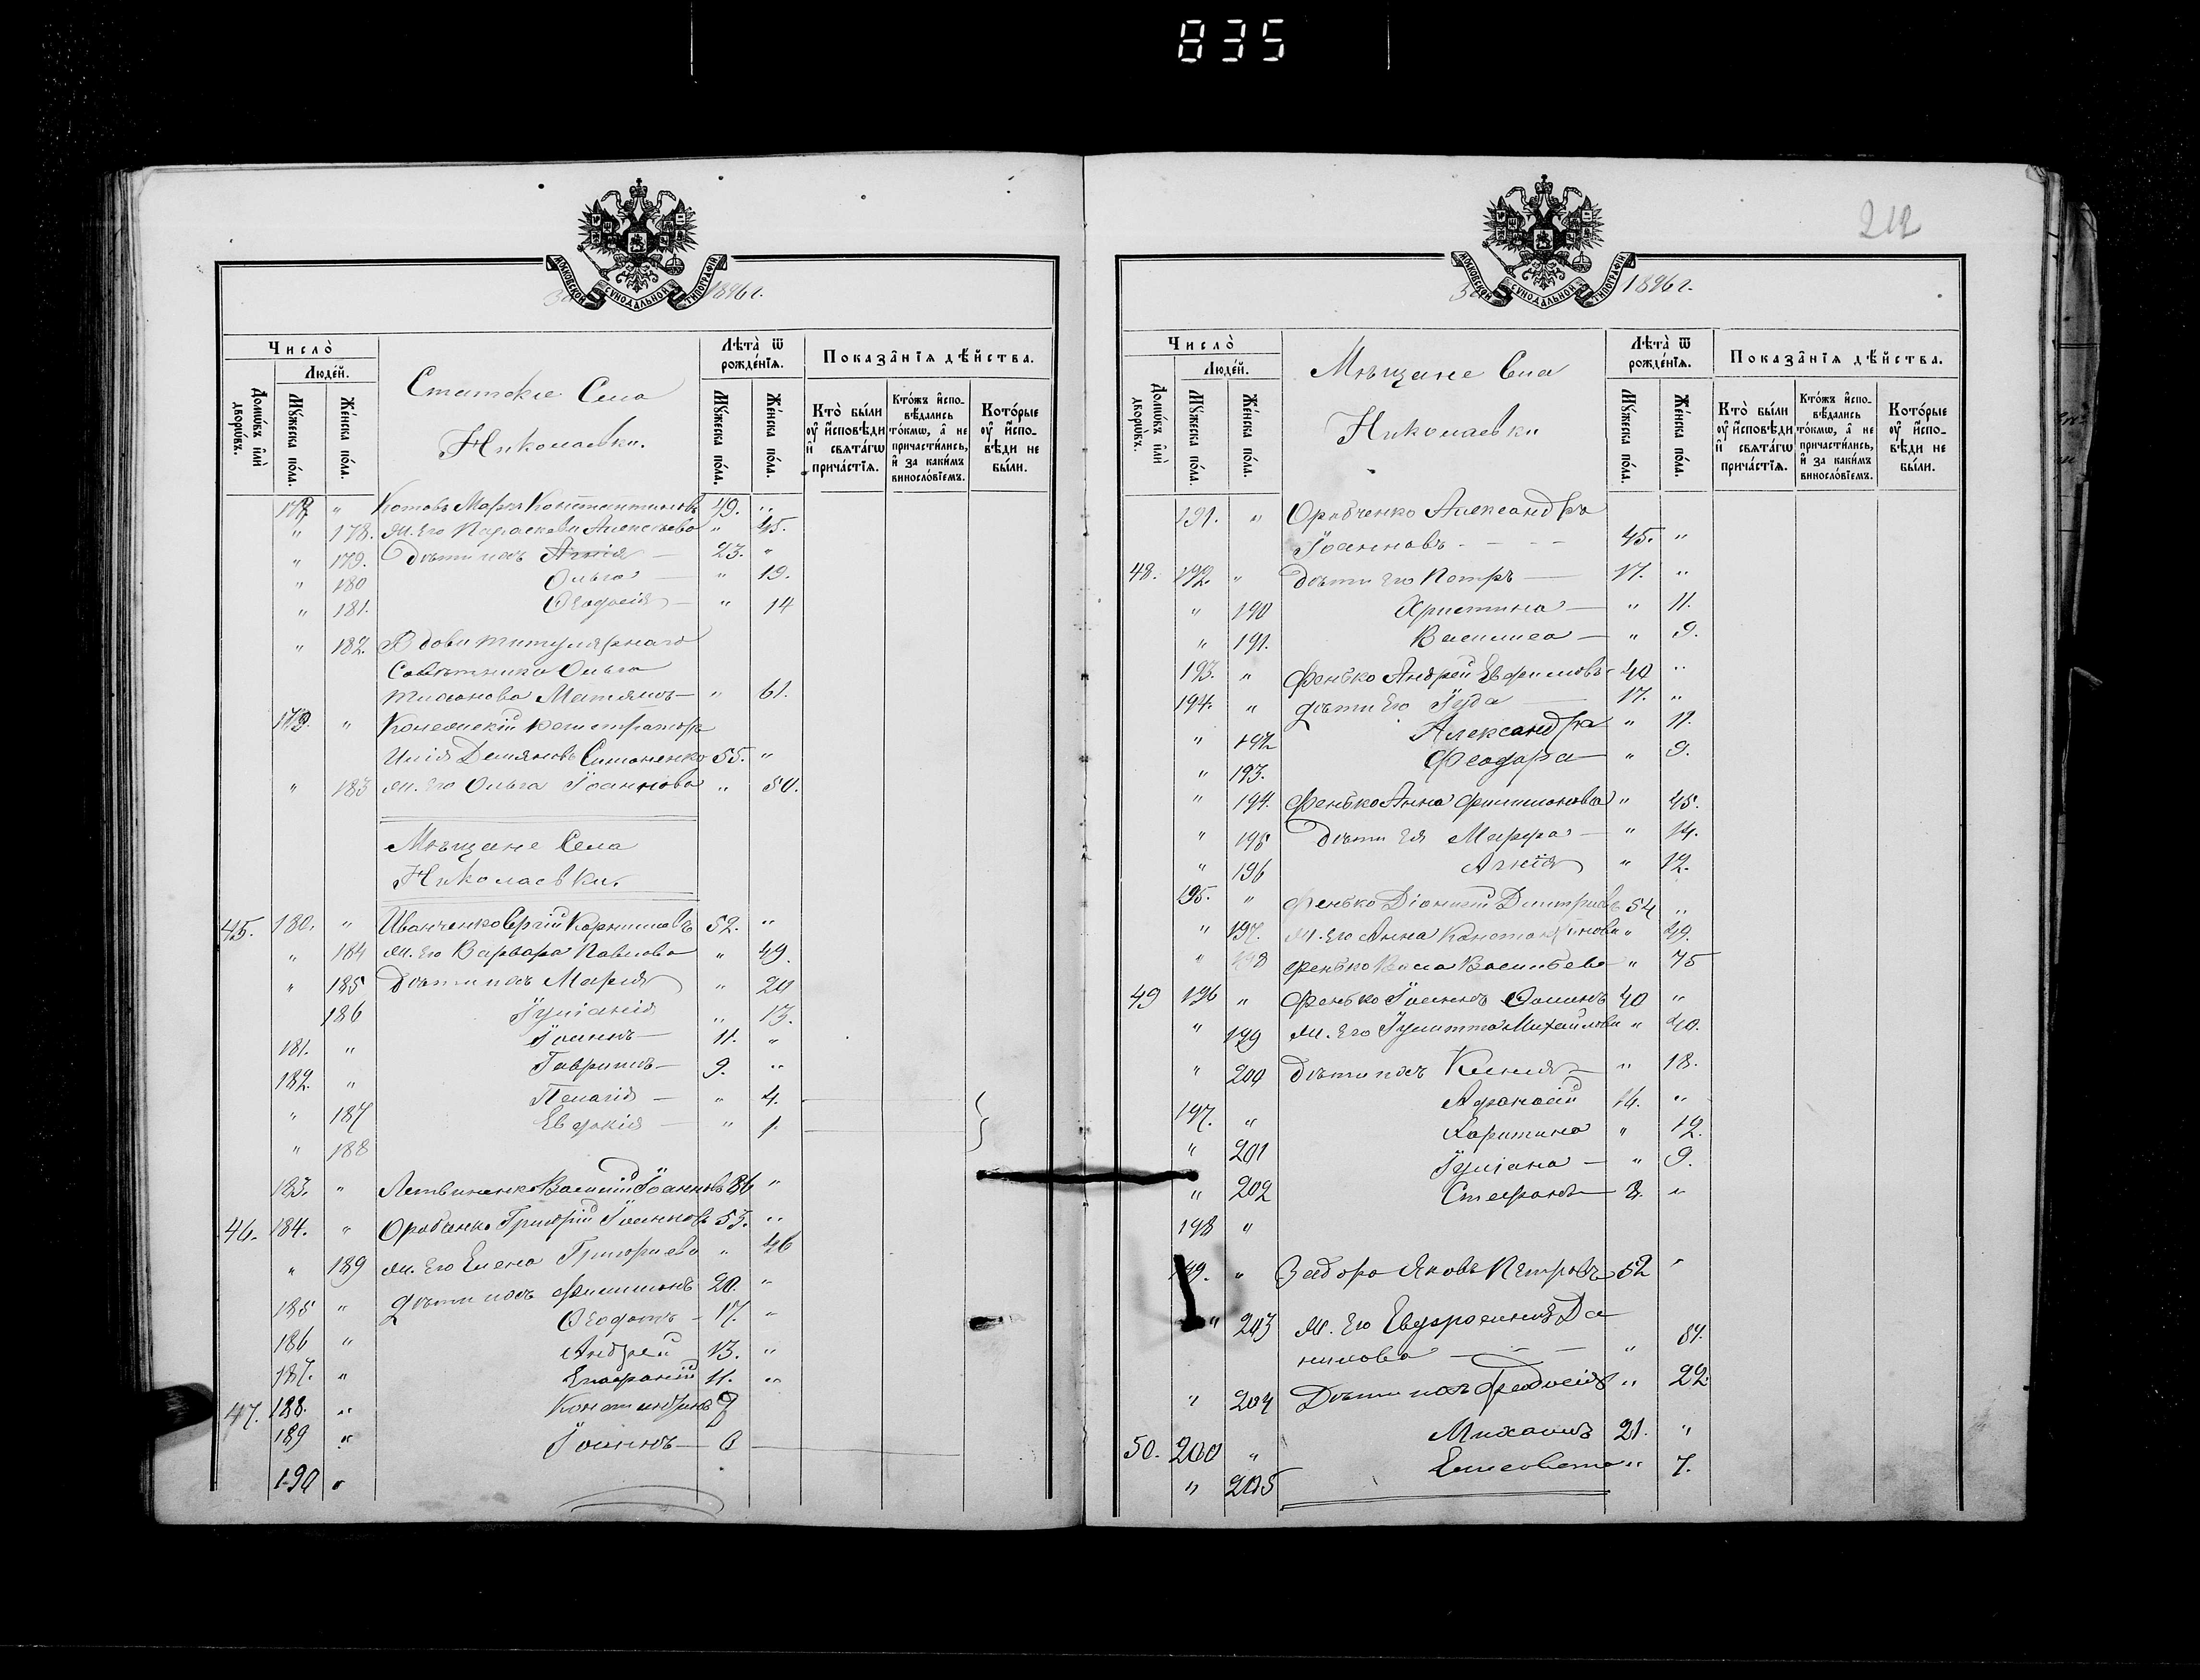 835
МОСКОВСКОЙ СѴНОДАЛЬНОЙ ТИПОГРАФІИ
За 1896 г.
Число̀
Людéй.
Домѡ́въ и҆лѝ дворѡ́въ.
Мꙋ́жеска по́ла.
Же́нска по́ла.
Статскіе Села
Николаевки.
Лѣ́та ѿ рожде́нїѧ.
Мꙋ́жеска по́ла.
Же́нска по́ла.
Показа̂нїѧ дѣ́йства.
Кто̀ бы́ли ᲂу҆ и҆́сповѣди и҆ свѧта́гѡ прича́стїѧ.
Кто́жъ и҆спо- вѣ́дались то́кмѡ, а҆ не причасти́лись, и҆ за каки́мъ винослóвїемъ.
Кото́рые ᲂу҆ и҆́спо- вѣди не бы́ли.
178 " Котовъ Маркъ Константиновъ 49. "
" 178. Ж. Его Параскева Алексѣева " 45.
" 179. Дѣти ихъ Агнія — 23. "
" 180 Ольга — " 19.
" 181. Ѳеодосія — " 14
" 182. Вдова титулярнаго
Совѣтника Ольга
" 61.
179. " Коллежскій регистраторъ
Илія Демяновъ Симоненко 55. "
" 183 Ж. Его Ольга Іоаннова " 50.
Мѣщане Села
Николаевки.
45. 180. " Иванченко Сергій Корниліевъ 52. "
" 184 Ж. Его Варвара Павлова " 49.
" 185 Дѣти ихъ Марія " 20
186 Іуліанія " 13.
181. " Іоаннъ — 11. "
182. " Гавріилъ — 9. "
" 187 Пелагія — " 4.
" 188 Евфикія — " 1.
183. " Литвиненко Василій Іоанновъ 86 "
46. 184. " Орабченко Григорій Іоанновъ 53. "
" 189 Ж. Его Елена Григориева " 46
185 " Дѣти ихъ Филимонъ 20. "
186 " Ѳеодотъ — 17. "
187. " Андрей 13. "
47. 188. " Епифаній 11. "
189 " Константинъ 9
190 " Іоаннъ — 6
212
МОСКОВСКОЙ СѴНОДАЛЬНОЙ ТИПОГРАФІИ
За 1896 г.
Число̀
Людéй.
Домѡ́въ и҆лѝ дворѡ́въ.
Мꙋ́жеска по́ла.
Же́нска по́ла.
Мѣщане Села
Николаевки
Лѣ́та ѿ рожде́нїѧ.
Мꙋ́жеска по́ла.
Же́нска по́ла.
Показа̂нїѧ дѣ́йства.
Кто̀ бы́ли ᲂу҆ и҆́сповѣди и҆ свѧта́гѡ прича́стїѧ.
Кто́жъ и҆спо- вѣ́дались то́кмѡ, а҆ не причасти́лись, и҆ за каки́мъ винослóвїемъ.
Кото́рые ᲂу҆ и҆́спо- вѣди не бы́ли.
191. " Орабченко Александръ
Іоанновъ - - - - 45. "
48. 192. " Дѣти Его Петръ — 17. "
" 190 Христина — " 11.
" 191. Василиса — " 9.
193. " Фенько Андрей Евфимовъ 40 "
194. " Дѣти Его Іуда — 17. "
" 192 Александра " 11.
" 193. Феодора — " 9.
" 194. Фенько Анна Филимонова " 45.
" 195 Дѣти Ея Марфа — " 14.
" 196 Агнія " 12.
195. " Фенько Діонисій Димитріевъ 54 "
" 197. Ж. Его Анна Константинова " 49.
" 198 Фенько Васса Васильева " 75
49 196 " Фенько Іоаннъ Ѳоминъ 40 "
" 199 Ж. Его Іулитта Михайлова " 40.
" 200 Дѣти ихъ Ксенія — " 18.
197. " Афанасій 14. "
" 201 Харитина " 12.
" 202 Іуліана — " 9.
198 " Стефанъ — 3. "
199. " Забора Яковъ Петровъ 52 "
" 203 Ж. Его Евфросинія Да
нилова — — — " 51.
" 204 Дѣти ихъ Феодосія " 22
50. 200 " Михаилъ 21. "
" 205 Елисавета " 7.